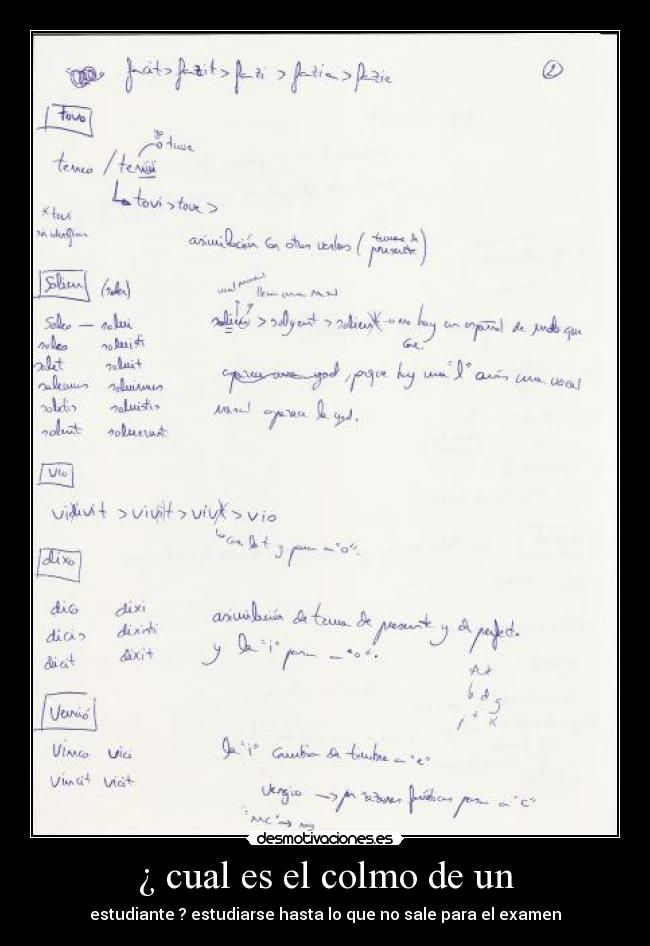 facit > fazit > fazi > fazia > fazie
2
tovo
teneo / tenui
tuve
tovi > tove >
* tovi
asimilación con otros verbos (temas de presente)
Solien (soler)
soleo — solui
soles soluisti
solet soluit
solemus soluimus
soletis soluistis
solent soluerunt
hay en español de modo que
cae.
yod, porque hay una "l" una vocal
aparece la yod.
vio
vidivit > vivit > vivt > vio
cae la t y pasa a "o".
dixo
dico dixi
dicis dixisti
dicit dixit
asimilación de tema de presente y de perfecto
y la "i" pasa a "o".
b d g
p t k
Venció
Vinco vici
vincit vicit
la "i" cambia de timbre a "e"
por razones fonéticas pasa a "c"
"nc" →
desmotivaciones.es
¿ cual es el colmo de un
estudiante ? estudiarse hasta lo que no sale para el examen